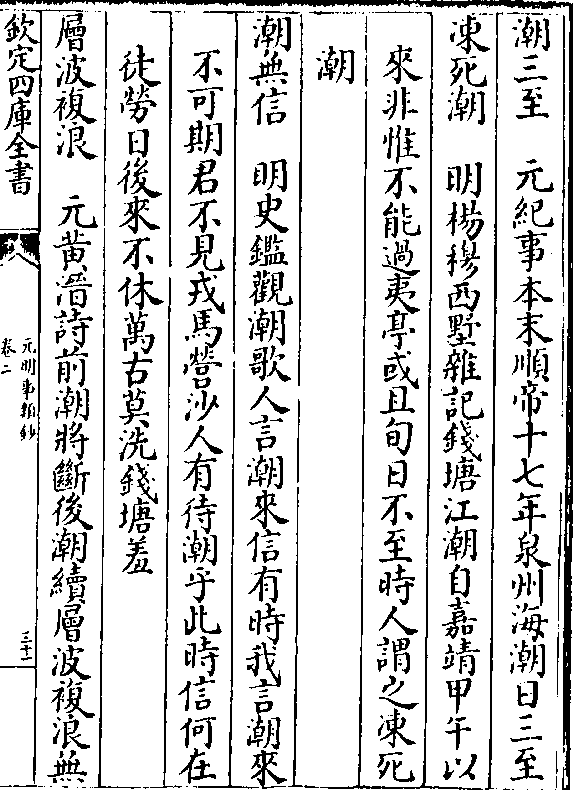 潮三至　元紀事本末順帝十七年泉州海潮日三至
凍死潮　明楊穆西墅雜記錢塘江潮自嘉靖甲午以
來非惟不能過夷亭或且旬日不至時人謂之凍死
潮
潮無信　明史鑑觀潮歌人言潮來信有時我言潮來
不可期君不見戎馬營沙人有待潮乎此時信何在
徒勞日後來不休萬古莫洗錢塘羞
層波複浪　元黄溍詩前潮將斷後潮續層波複浪無
欽定四庫全書
元明事類鈔
卷二
三十一